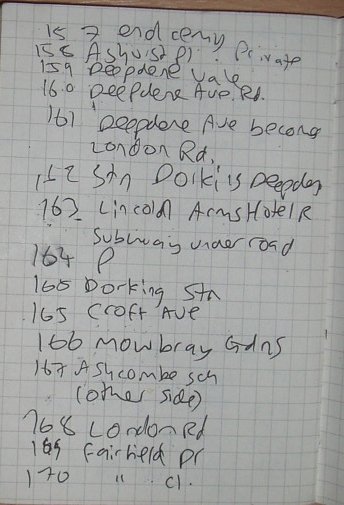 157 end cemy
158 Ashurst Pl. Private
159 Deepdene Vale
160 Deepdene Ave. Rd.
161 Deepdene Ave becomes
London Rd.
162 Stn Dorking Deepdene
163 Lincoln Arms Hotel R
Subway under road
164 P
165 Dorking Stn
165 Croft Ave
166 Mowbray Gdns
167 Ashcombe sch
(other side)
168 London Rd
169 Fairfield Dr
170 " cl.